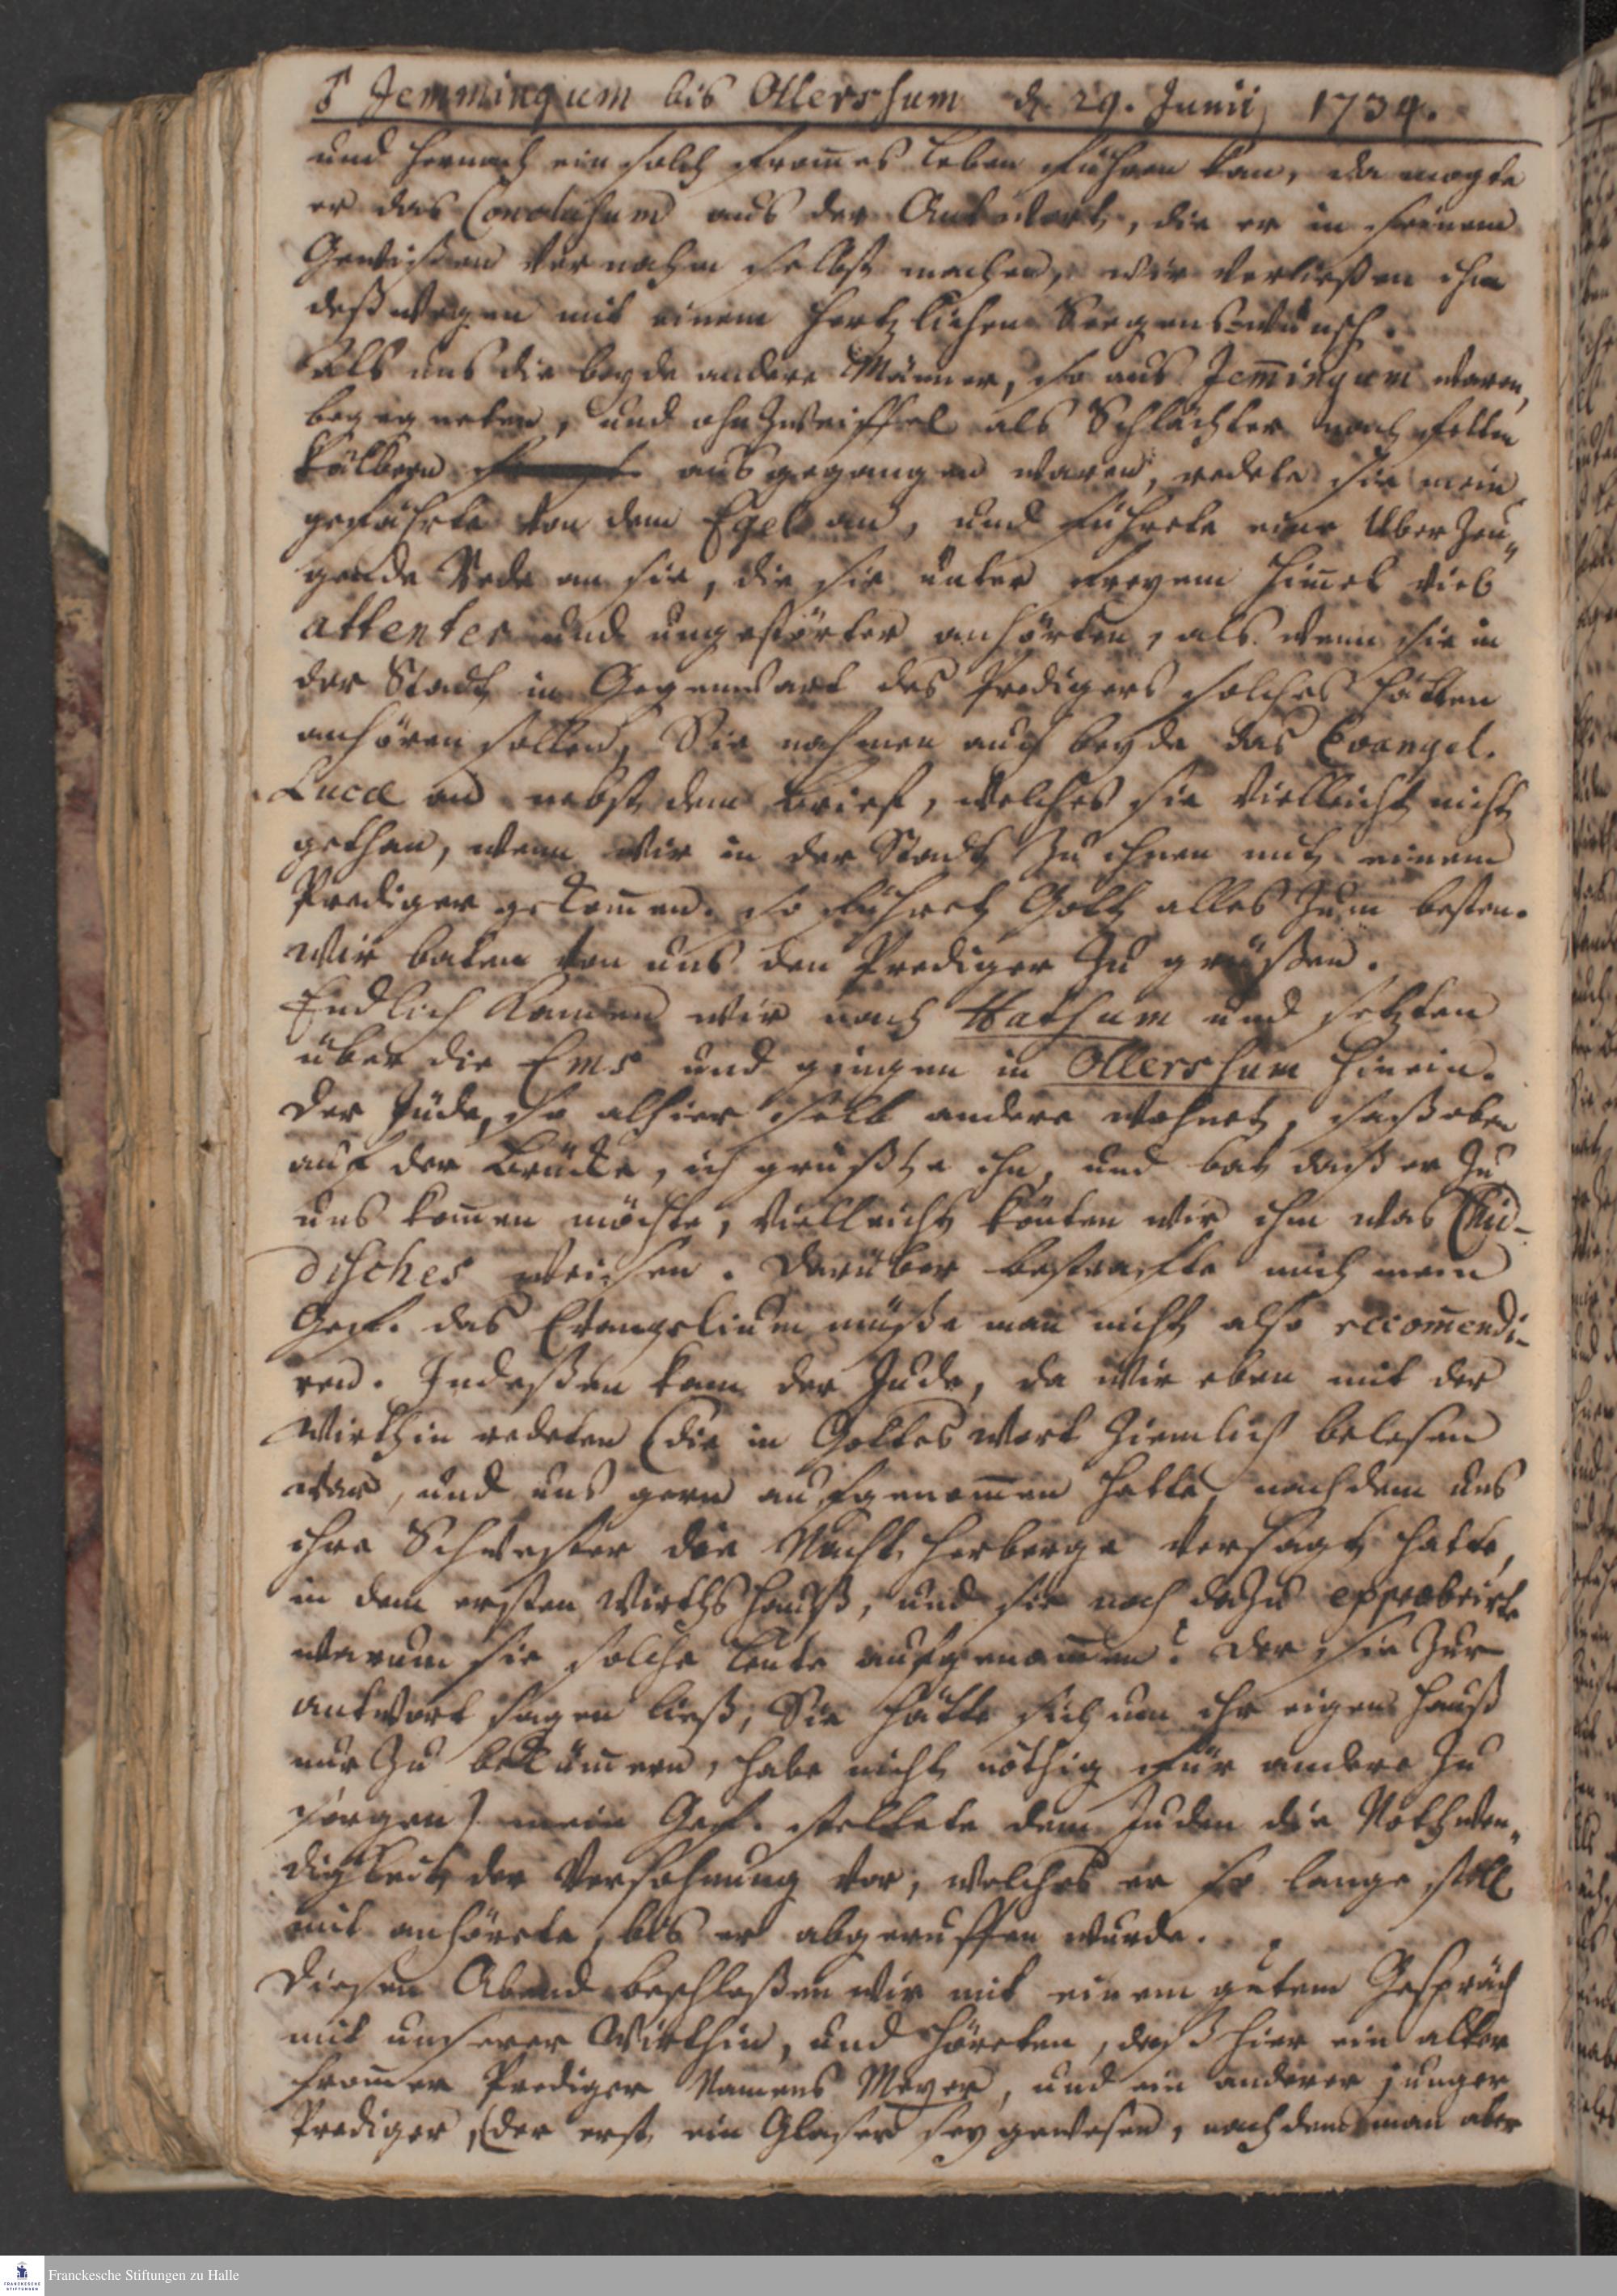 ♂ Jemmingum bis Ollershum d. 29. Junii, 1734.
und hernach ein solch from̅es Leben führen kan, da mogte
er das Conclusum aus der Antwort, die er in seinem
Gewißen vernahm selbst machen, wir verließen ihn
deßwegen mit einem hertzlichen Seegens-wunsch.
Als uns die beyde andere Männer, so aus Jem̅ingum waren,
begegneten, und ohn Zweiffel als Schlächter nach fetten
Kälbern ausgegangen waren, redete sie mein
gefährte von dem Egel an, und führete eine Uberzeu„
gende Rede an sie, die sie unter freyem Him̅el viel
attenter und ungestörter anhörten, als wenn sie in
der Stadt in Gegenwart des Predigers solches hätten
anhören sollen, Sie nahmen auch beyde das Evangel.
Lucæ an nebst dem brief, welches sie vielleicht nicht
gethan, wenn wir in der Stadt zu ihnen mit einem
Prediger gekom̅en. so führet Gott alles zum besten.
Wir baten von uns den Prediger zu grüßen.
Endlich kamen wir nach Hatsum und setzten
über die Ems und gingen in Ollershum hinein.
Der Jude, so alhier selb andere wohnet, saß oben
auf der Brücke, ich grüßte ihn, und bat daß er zu
uns kom̅en möchte, vielleicht könten wir ihm was Chid-
disches weisen. Darüber bestrafte mich mein
Gef. das Evangelium müße man nicht also recom̅endi-
ren. Indeßen kam der Jude, da wir eben mit der
Wirthin redeten (die in Gottes Wort ziemlich belesen
war, und uns gern aufgenom̅en hatte, nachdem uns
ihre Schwester die Nacht herberge versagt hatte,
in dem ersten Wirthshauß, und sie noch dazu exprobrirte
warum sie solche Leute aufgenom̅en? der sie zur
antwort sagen ließ, Sie hätte sich um ihr eigen Hauß
nur zu beküm̅ern, habe nicht nöthig für andere zu
sorgen) mein Gef. stellete dem Juden die Nothwen„
digkeit der Versöhnung vor, welches er so lange still
mit anhörete, bis er abgeruffen wurde.
Diesen Abend beschloßen wir mit einem gutem Gespräch
mit unserer Wirthin, und höreten, daß hier ein alter
from̅er Prediger Namens Meyer, und ein anderer junger
Prediger, (der erst ein Glaser sey gewesen, nachdem man aber
Franckesche Stiftungen zu Halle